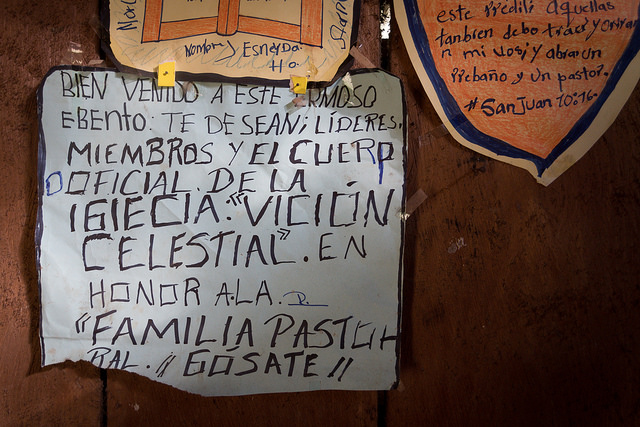 Nombre y Esnerda
H o.
este Predili aquellas
tanbien debo traer y oyiran
n mi vos; y abra un
rebaño y un pastor.
# San Juan 10:16.
BIEN VENIDO A ESTE ERMOSO
EBENTO: TE DESEAN; LÍDERES.
MIEMBROS Y EL CUERPO
OFICIAL. DE LA
IGIECIA: "VICIÓN
CELESTIAL". EN
HONOR A.LA. P.
"FAMILIA PASTOH
RAL. // GOSATE //